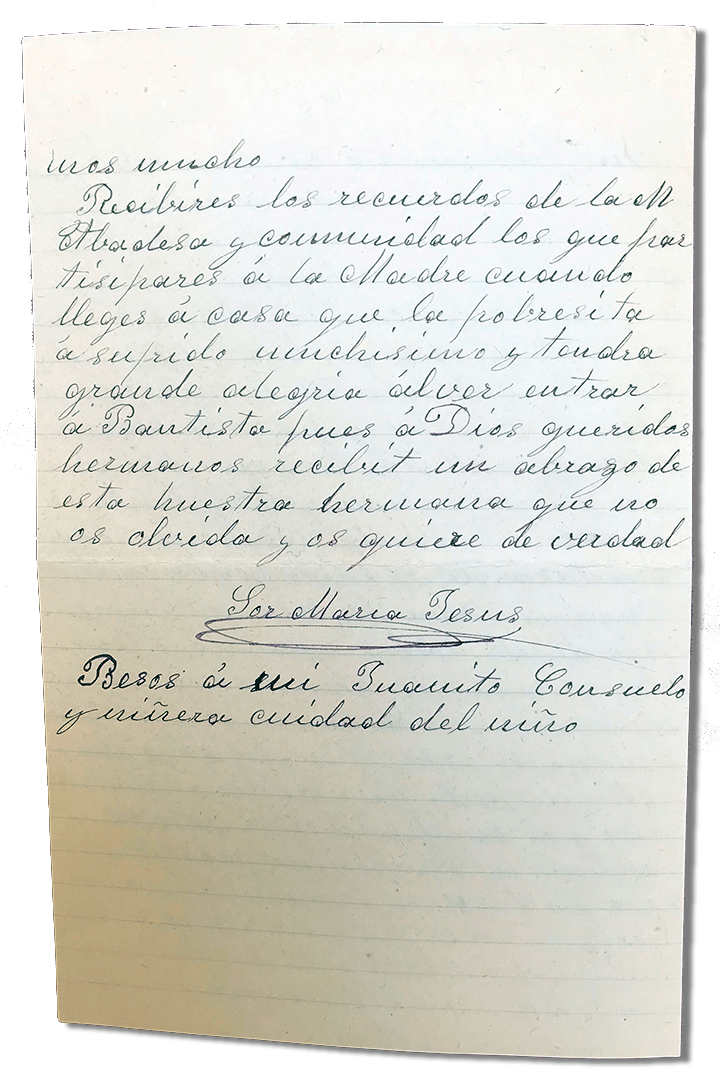 mos mucho
Recibires los recuerdos de la M
Abadesa y comunidad los que par
tisipares á la Madre cuando
lleges á casa que la pobresita
á sufrido munchisimo y tendra
grande alegria álver entrar
á Bautista pues á Dios queridos
hermanos recibit un abrazo de
esta nuestra hermana que no
os olvida y os quiere de verdad
Sor Maria Jesus
Besos á mi Juanito Consuelo
y niñera cuidad del niño